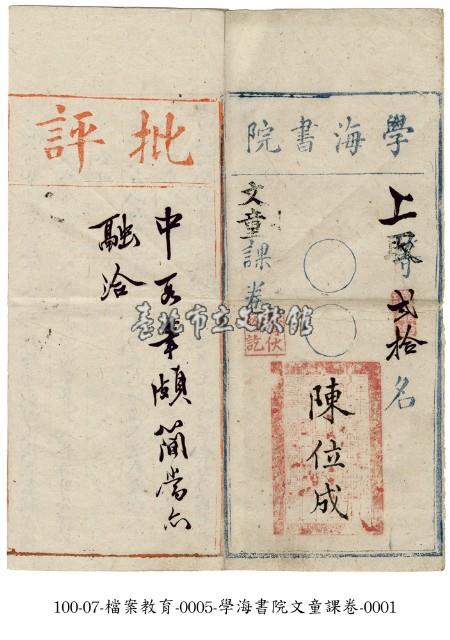 學海書院
上貳拾名
文童課卷
陳位成
批評
中頗簡當亦
融洽
臺北市立文獻館
100-07-檔案教育-0005-學海書院文童課卷-0001